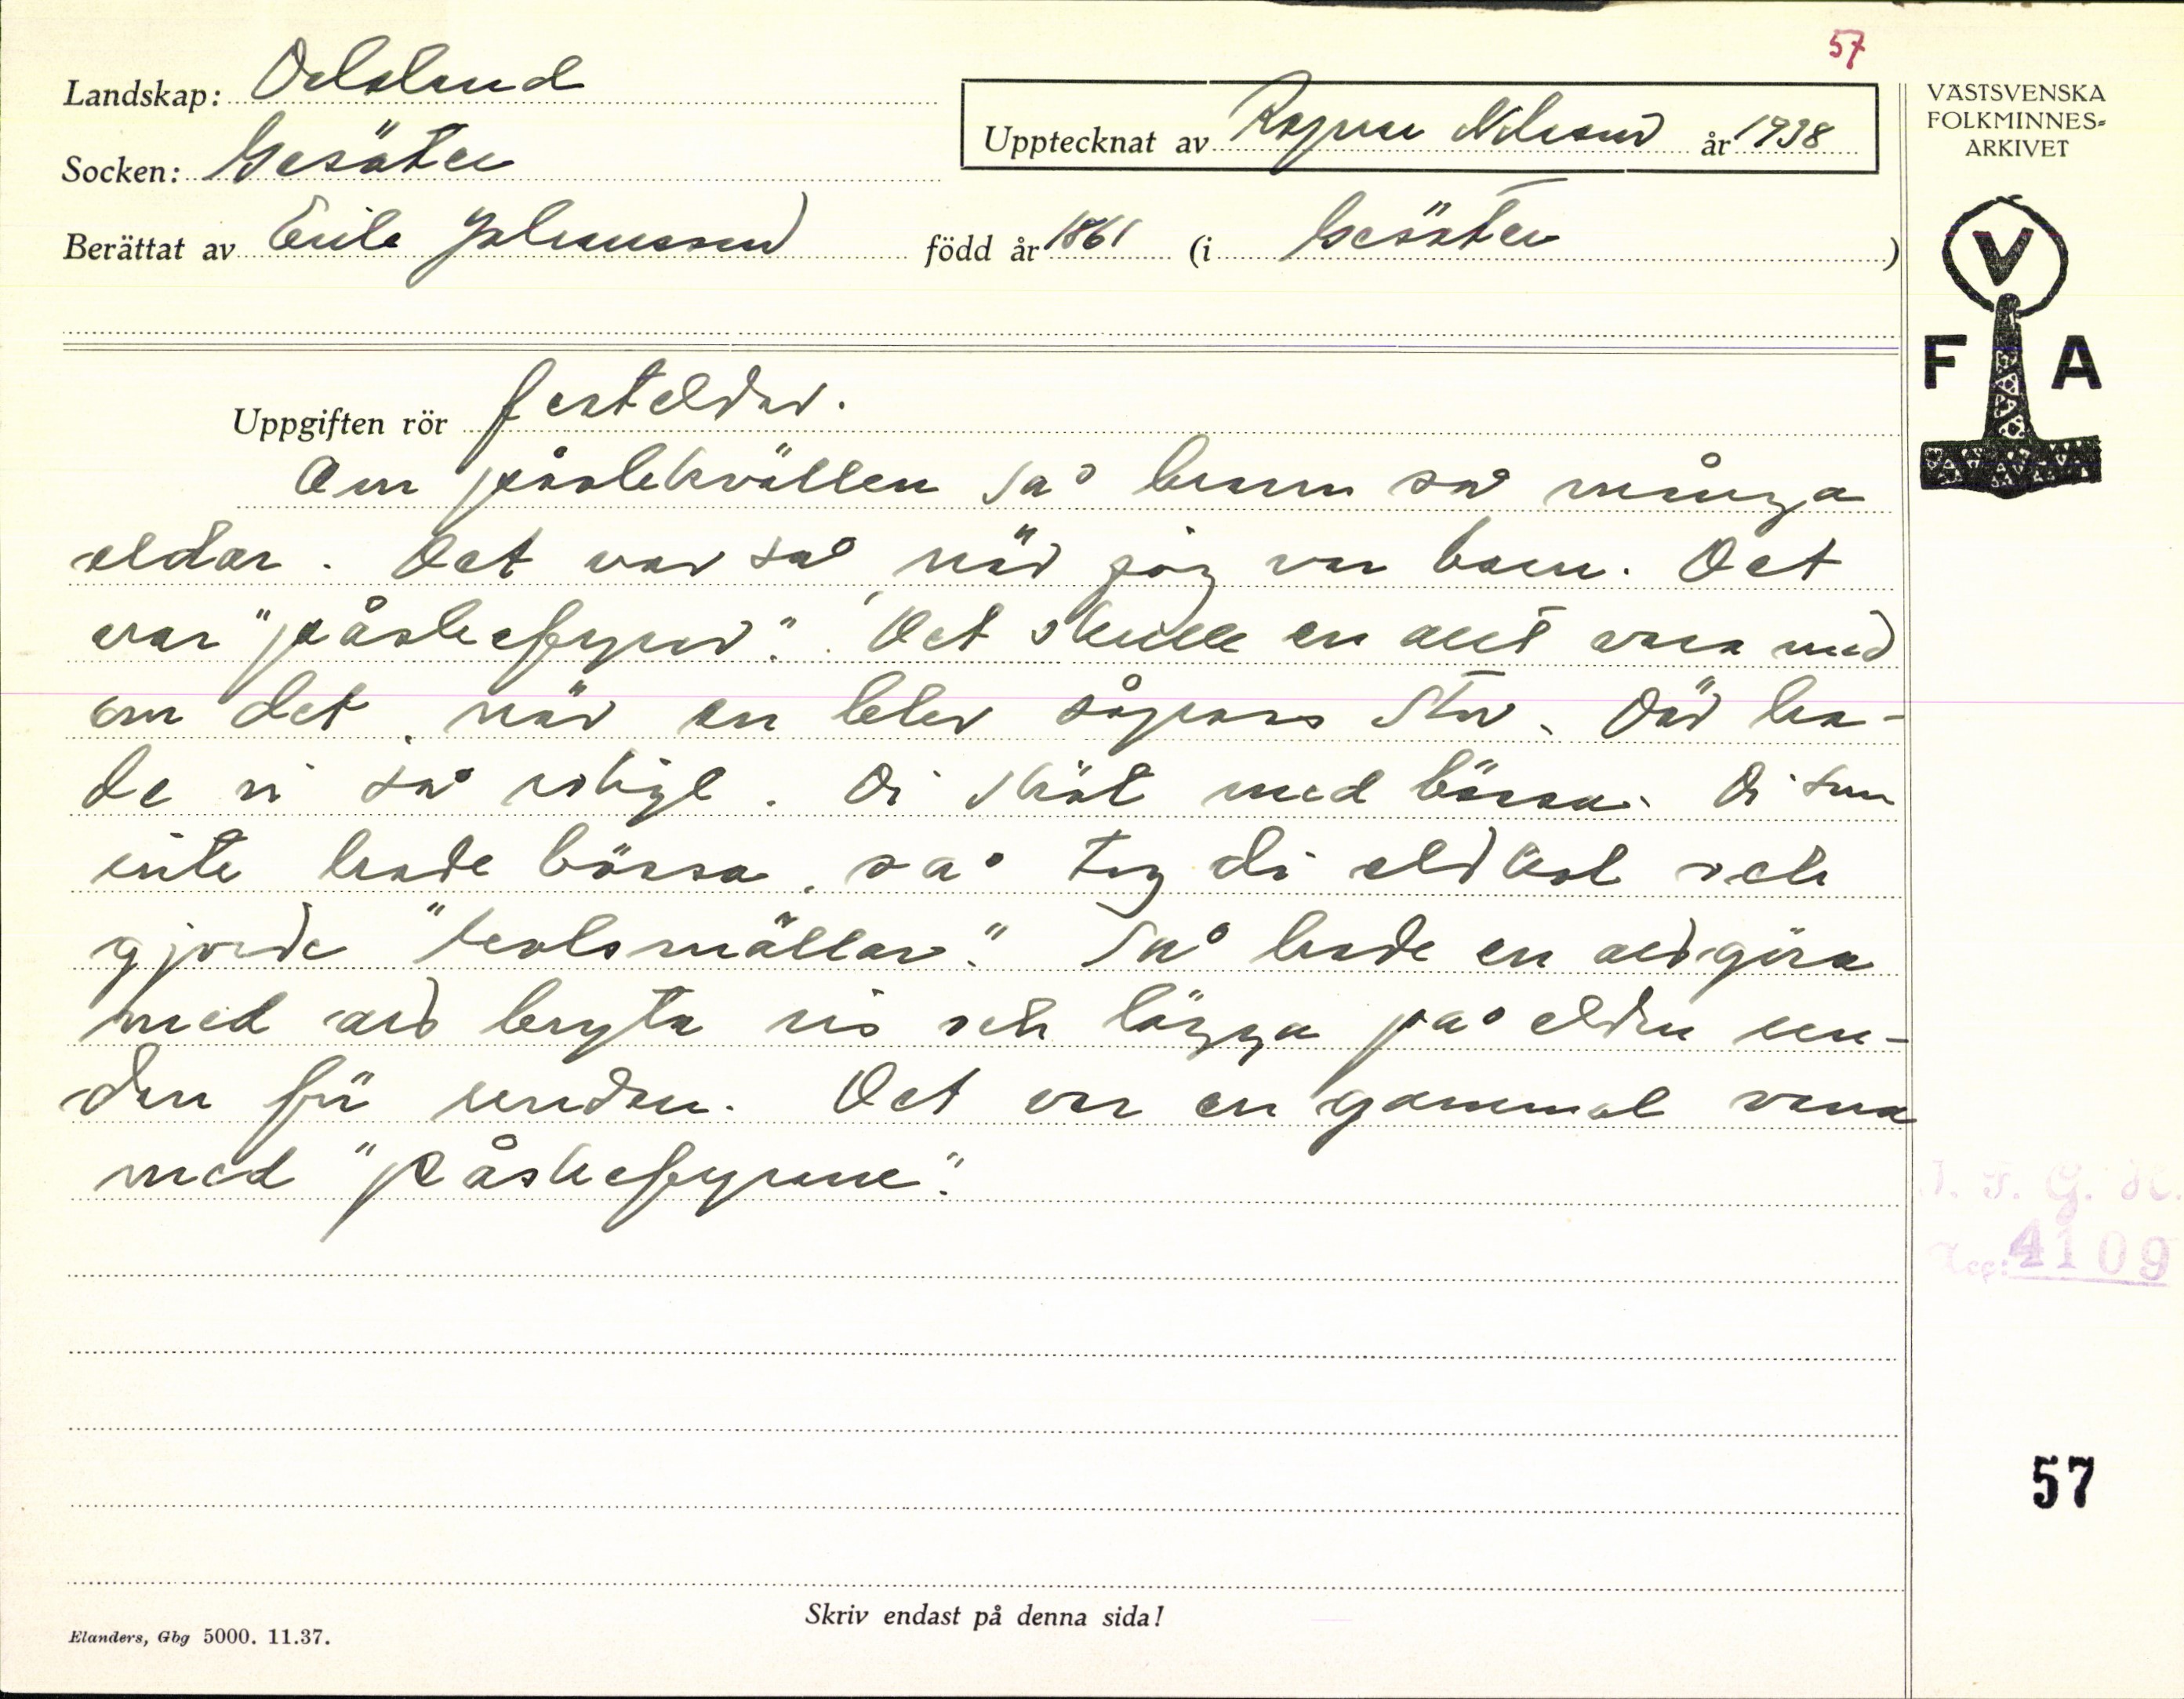 57
Landskap: Dalsland
Upptecknat av Ragnar Nilsson år 1938
VÄSTSVENSKA
FOLKMINNES=
ARKIVET
Socken: Gesäter
Berättat av Erik Johansson född år 1861 (i Gesäter)
V
F A
Uppgiften rör festeldar.
Om påskekvällen så brann så många
eldar. Det var så, när jög var barn. Det
var "påskefyrar". Det skulle en allt vara med
om det, när en blev såpass stor. Där ha-
de vi så roligt. Di sköt med bössa. Di som
inte hade bössa, så tog di eldkol och
gjorde "kolsmällar". Så hade en ad göra
med ad bryta ris och lägga på elden un-
dan för undan. Det var en gammal vana
med "påskefyrane".
I. F. G. H.
Acc: 4109
57
Skriv endast på denna sida!
Elanders, Gbg 5000. 11.37.